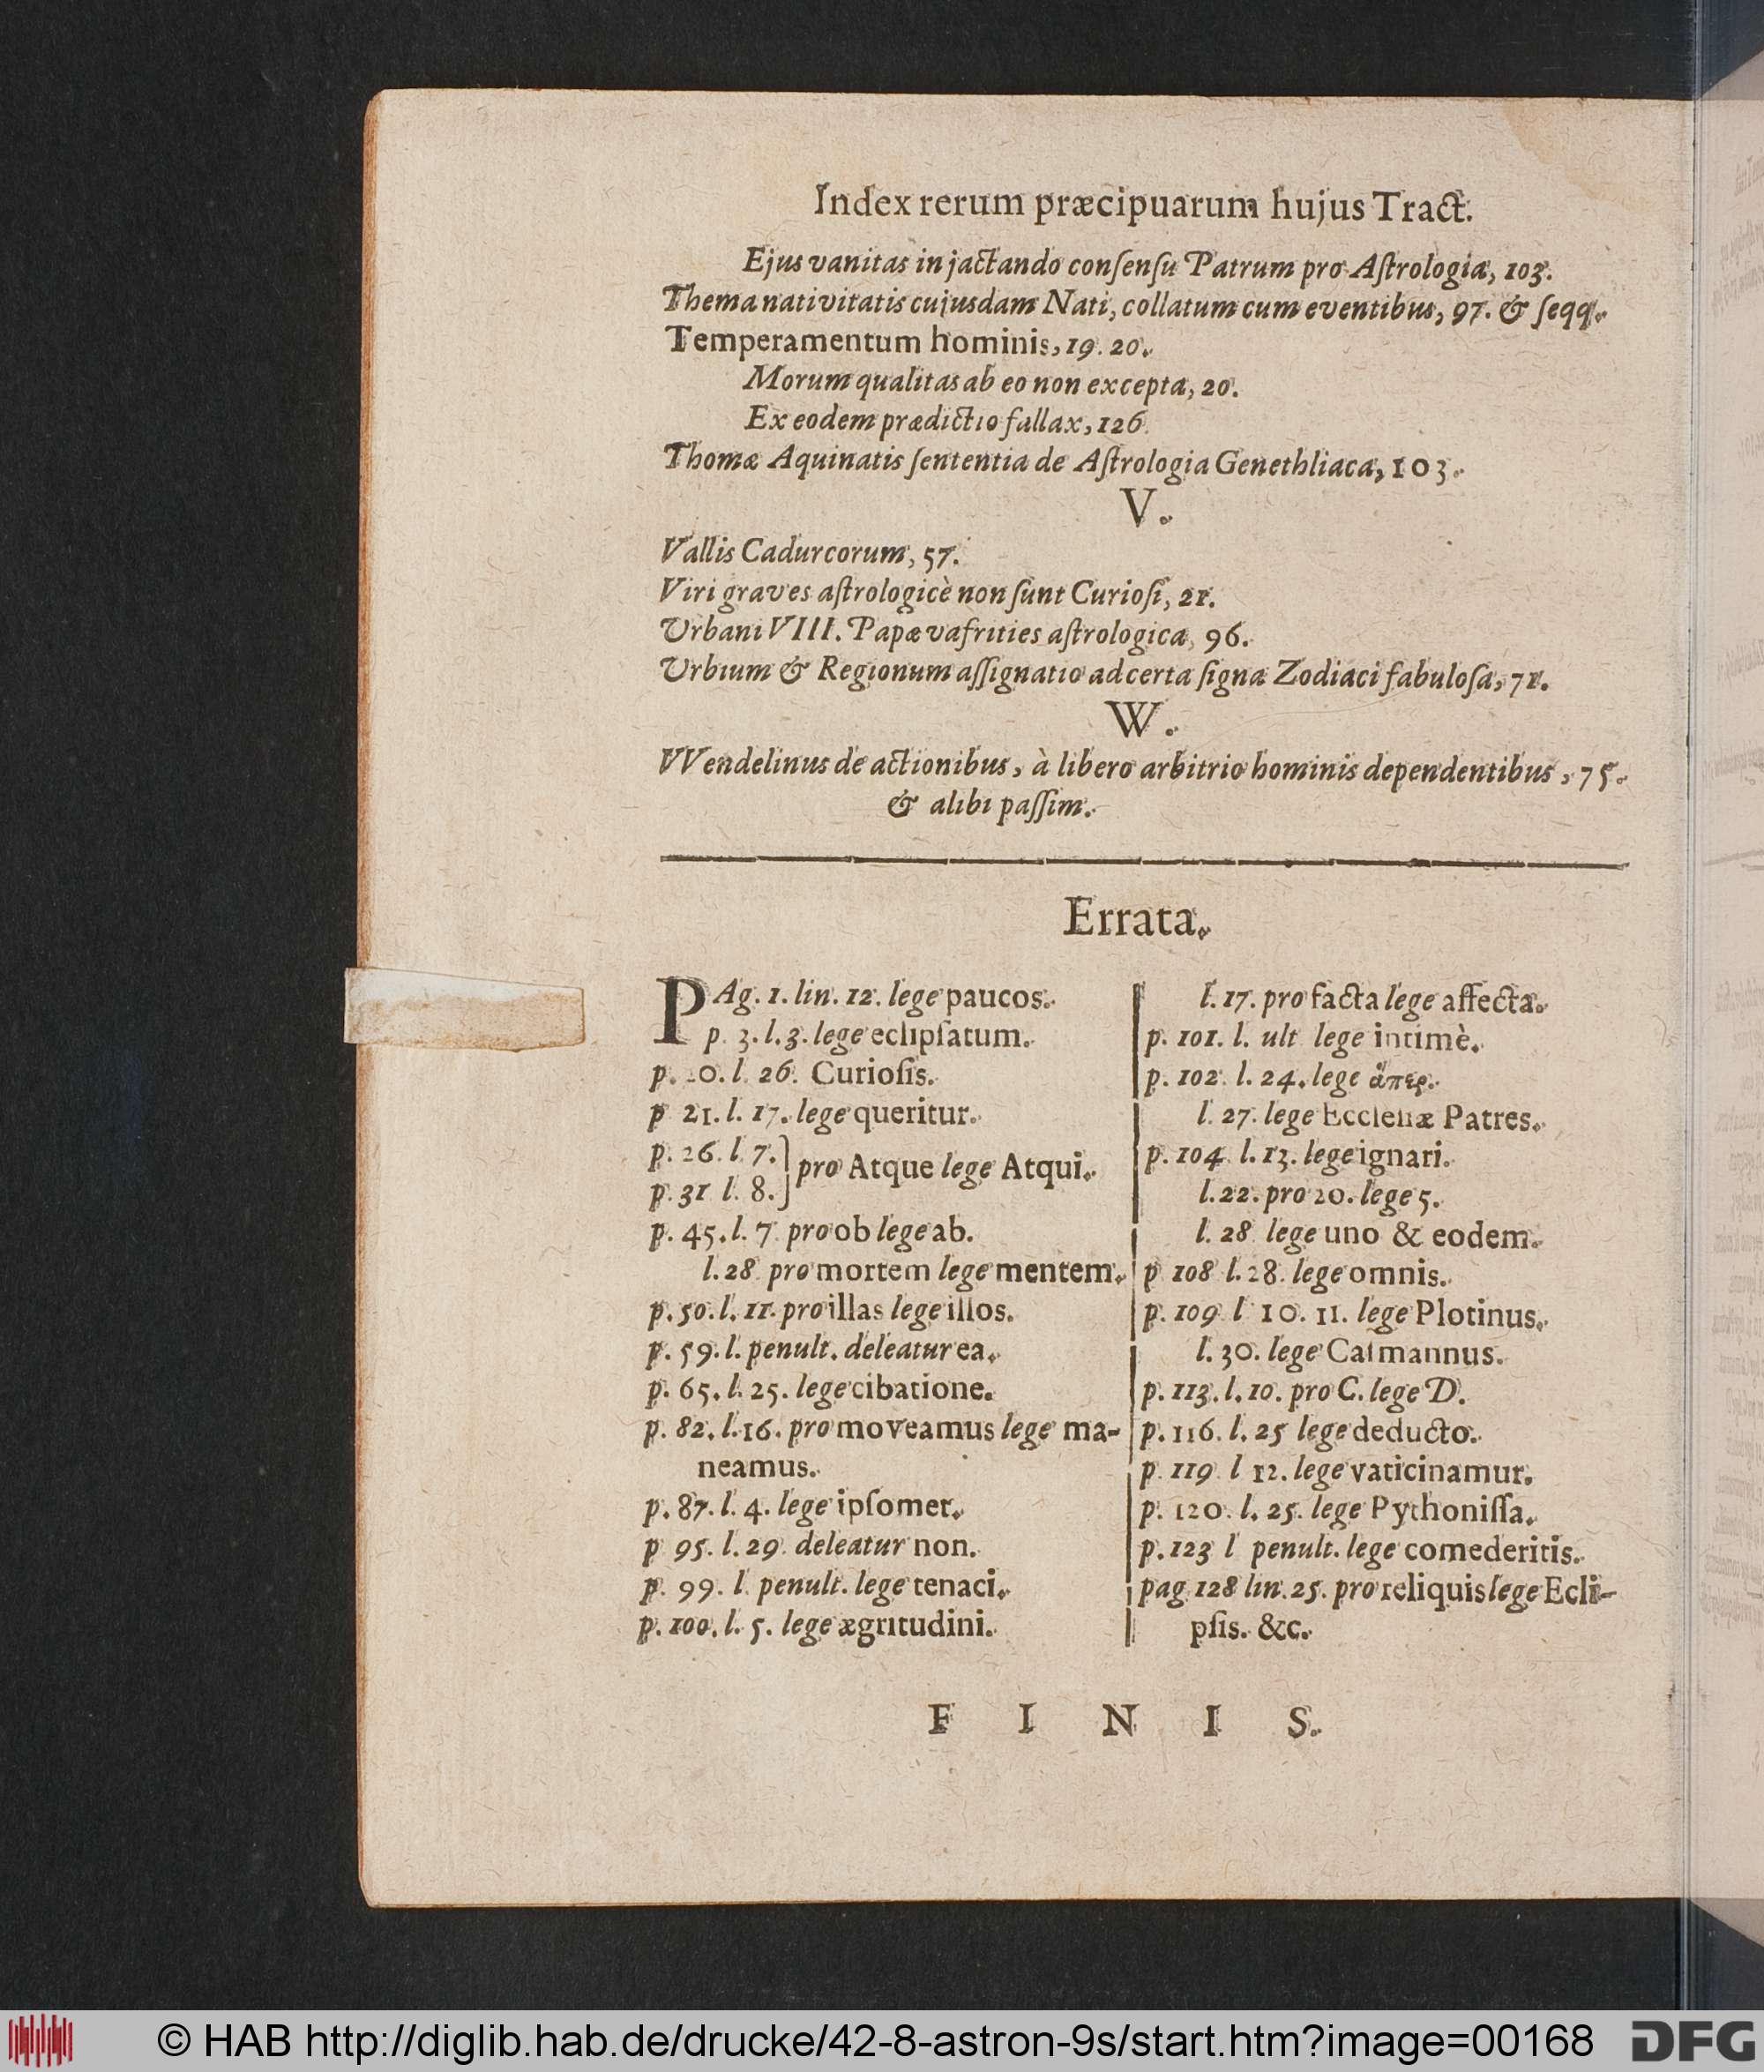 Index rerum præcipuarum hujus Tract.
Ejus vanitas in jactando consensu Patrum pro Astrologia, 103.
Thema nativitatis cujusdam Nati, collatum cum eventibus, 97. & seqq.
Temperamentum hominis, 19. 20.
Morum qualitas ab eo non excepta, 20.
Ex eodem prædictio fallax, 126.
Thomæ Aquinatis sententia de Astrologia Genethliaca, 103.
V.
Vallis Cadurcorum, 57.
Viri graves astrologicè non sunt Curiosi, 21.
Urbani VIII. Papæ vafrities astrologica, 96.
Urbium & Regionum assignatio ad certa signa Zodiaci fabulosa, 71.
W.
VVendelinus de actionibus, à libero arbitrio hominis dependentibus, 75.
& alibi passim.
Errata.
PAg. 1. lin. 12. lege paucos.
p. 3. l. 3. lege eclipsatum.
p. 20. l. 26. Curiosis.
p 21. l. 17. lege queritur.
p. 26. l. 7. } pro Atque lege Atqui.
p. 31 l. 8.
p. 45. l. 7. pro ob lege ab.
l. 28. pro mortem lege mentem.
p. 50. l. 11. pro illas lege illos.
p. 59. l. penult. deleatur ea.
p. 65. l. 25. lege cibatione.
p. 82. l. 16. pro moveamus lege ma-
neamus.
p. 87. l. 4. lege ipsomet.
p 95. l. 29. deleatur non.
p. 99. l. penult. lege tenaci.
p. 100. l. 5. lege ægritudini.
l. 17. pro facta lege affecta.
p. 101. l. ult lege intimè.
p. 102. l. 24. lege ἅπερ.
l. 27. lege Ecclesiæ Patres.
p. 104 l. 13. lege ignari.
l. 22. pro 20. lege 5.
l. 28 lege uno & eodem.
p 108 l. 28. lege omnis.
p. 109 l 10. 11. lege Plotinus.
l. 30. lege Casmannus.
p. 113. l. 10. pro C. lege D.
p. 116. l. 25 lege deducto.
p. 119 l 12. lege vaticinamur.
p. 120. l. 25. lege Pythonissa.
p. 123 l penult. lege comederitis.
pag. 128 lin. 25. pro reliquis lege Ecli-
psis. &c.
F I N I S.
© HAB http://diglib.hab.de/drucke/42-8-astron-9s/start.htm?image=00168
DFG